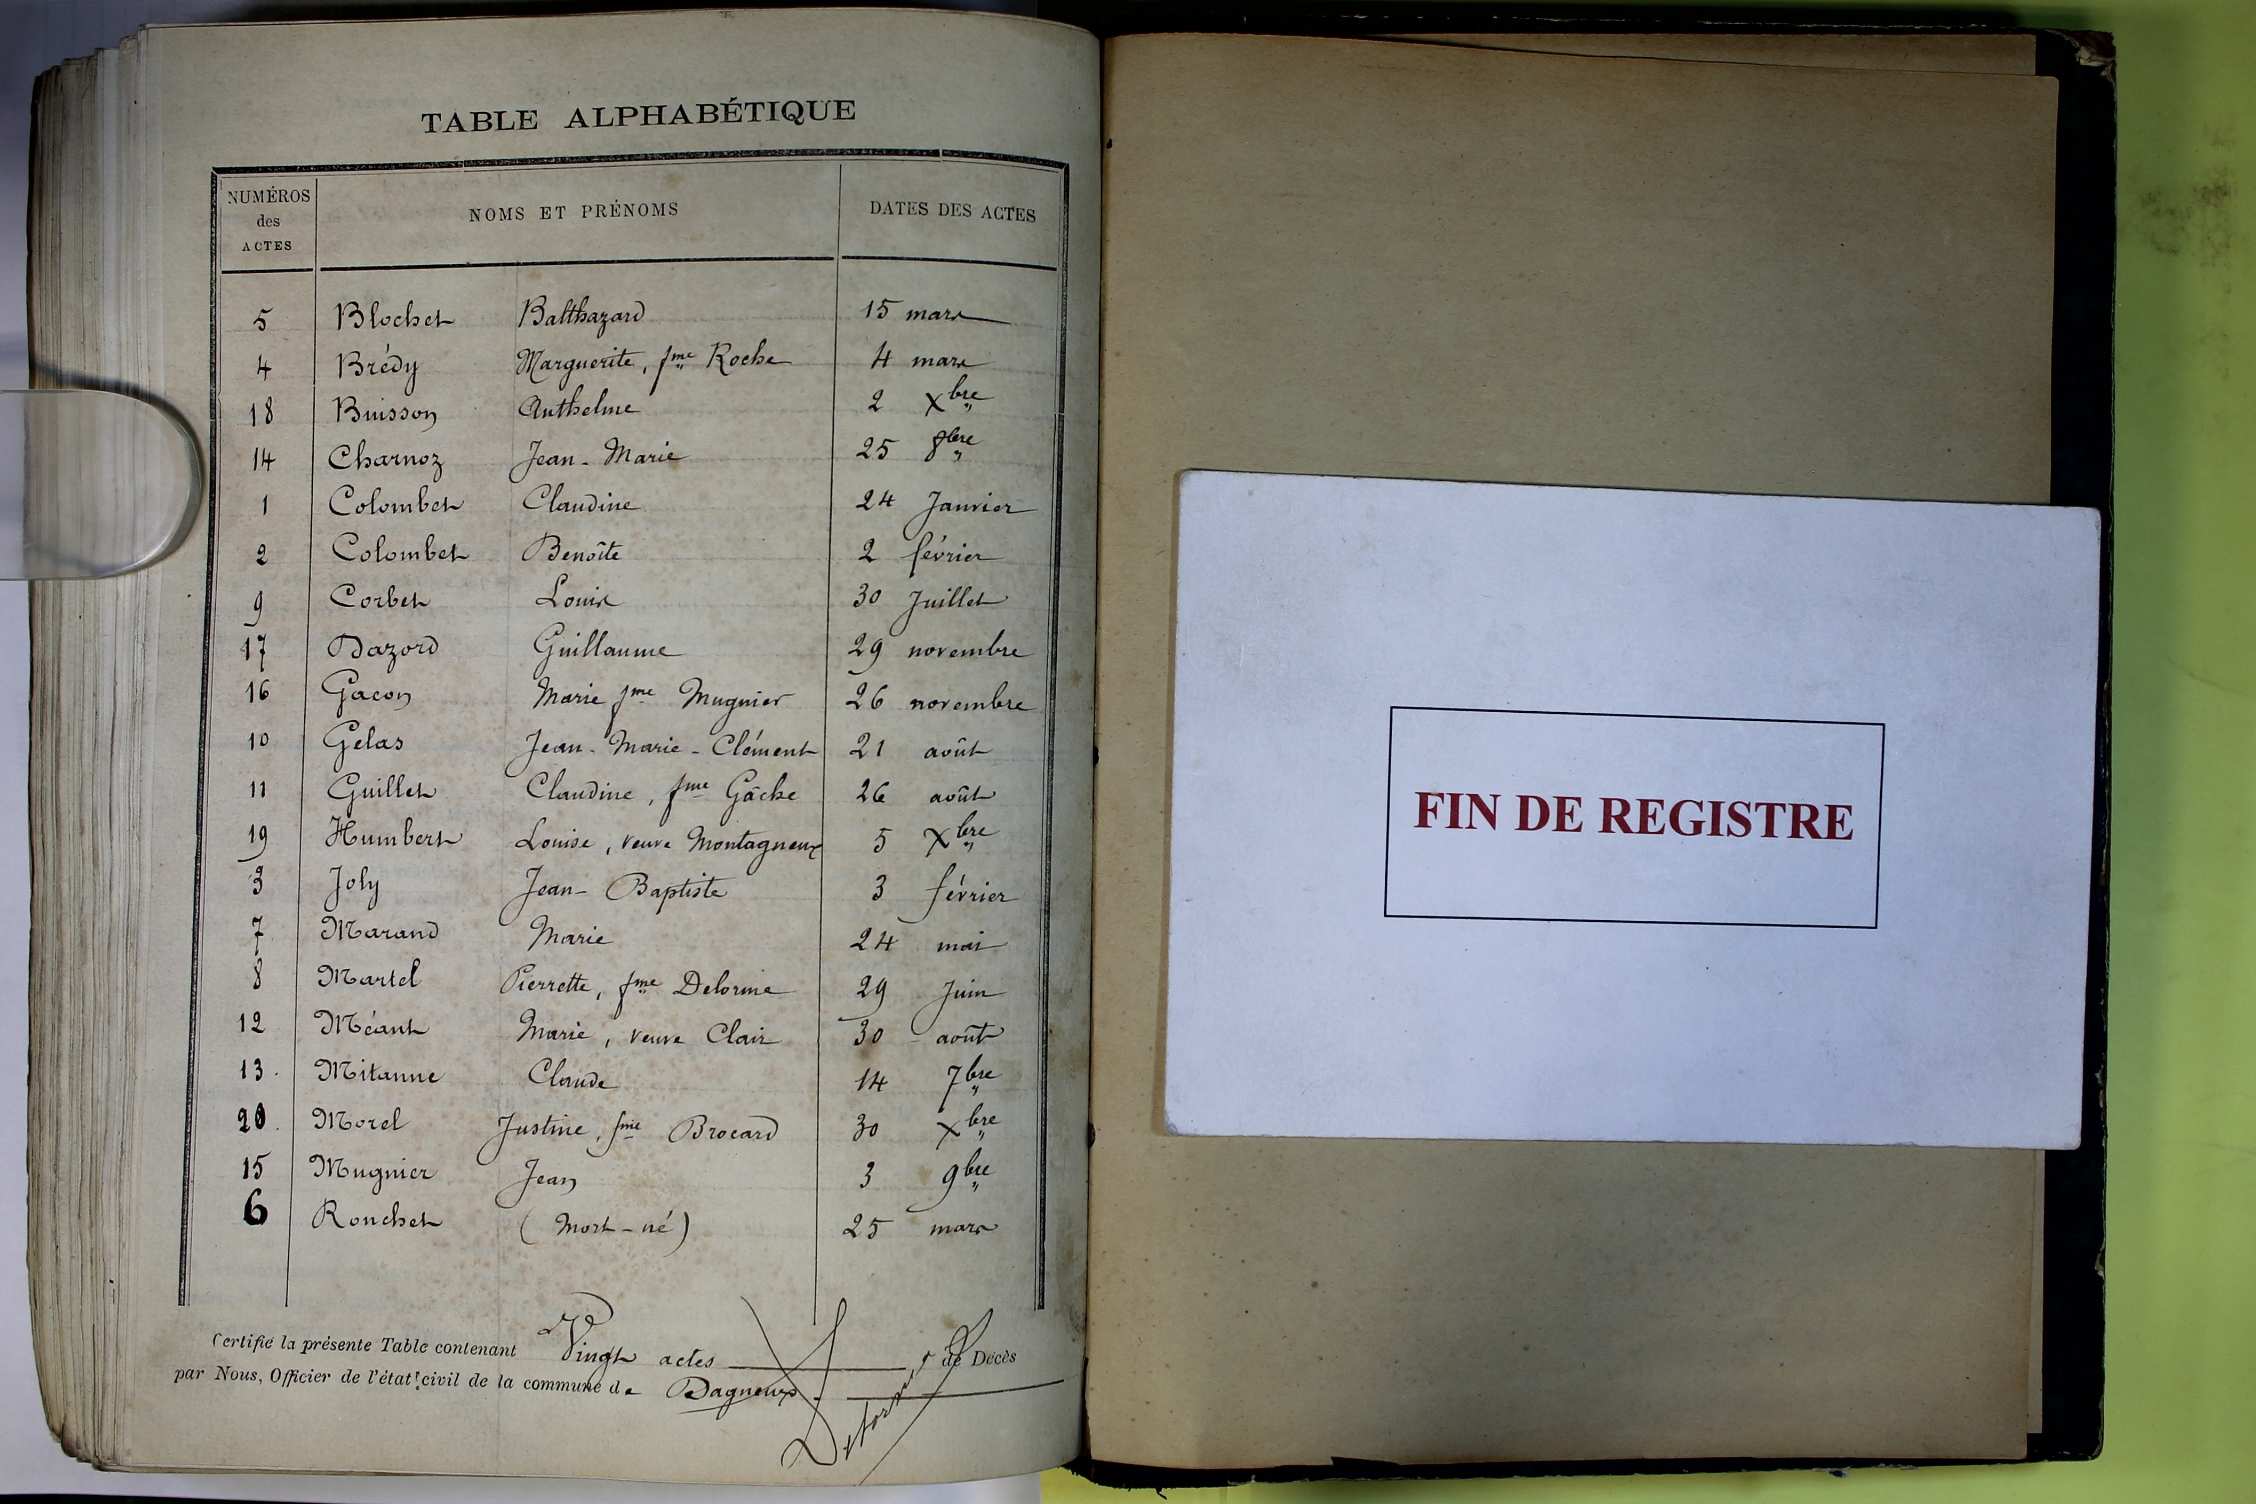 TABLE ALPHABÉTIQUE
NUMÉROS des ACTES NOMS ET PRÉNOMS DATES DES ACTES
5 Blochet Balthazard 15 mars
4 Brédy Marguerite, fme Roche 4 mars
18 Buisson Anthelme 2 Xbre
14 Charnoz Jean-Marie 25 8bre
1 Colombet Claudine 24 Janvier
2 Colombet Benoîte 2 février
9 Corbet Louis 30 Juillet
17 Dazord Guillaume 29 novembre
16 Gacon Marie fme Mugnier 26 novembre
10 Gelas Jean-Marie-Clément 21 août
11 Guillet Claudine, fme Gâche 26 août
19 Humbert Louise, veuve Montagneux 5 Xbre
3 Joly Jean-Baptiste 3 février
7 Marand Marie 24 mai
8 Martel Pierrette, fme Delorme 29 Juin
12 Méant Marie, veuve Clair 30 août
13 Mitanne Claude 14 7bre
20 Morel Justine, fme Brocard 30 Xbre
15 Mugnier Jean 3 9bre
6 Ronchet (Mort-né) 25 mars
Certifié la présente Table contenant Vingt actes de Décès
par Nous, Officier de l'état civil de la commune de Dagneux
FIN DE REGISTRE